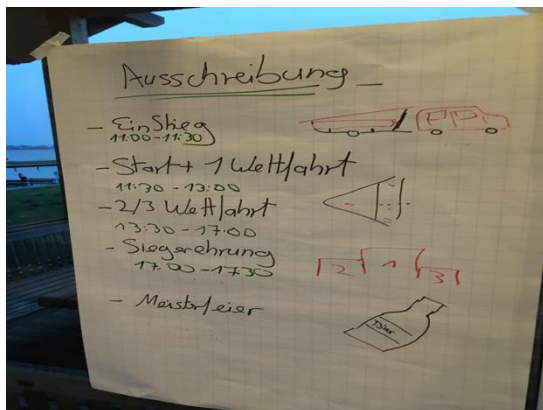 Ausschreibung
- Einstieg
11:00-11:30
- Start + 1 Wettfahrt
11:30 - 13:00
- 2/3 Wettfahrt
13:30 - 17:00
- Siegerehrung
17:00 - 17:30
2 1 3
- Meisterfeier